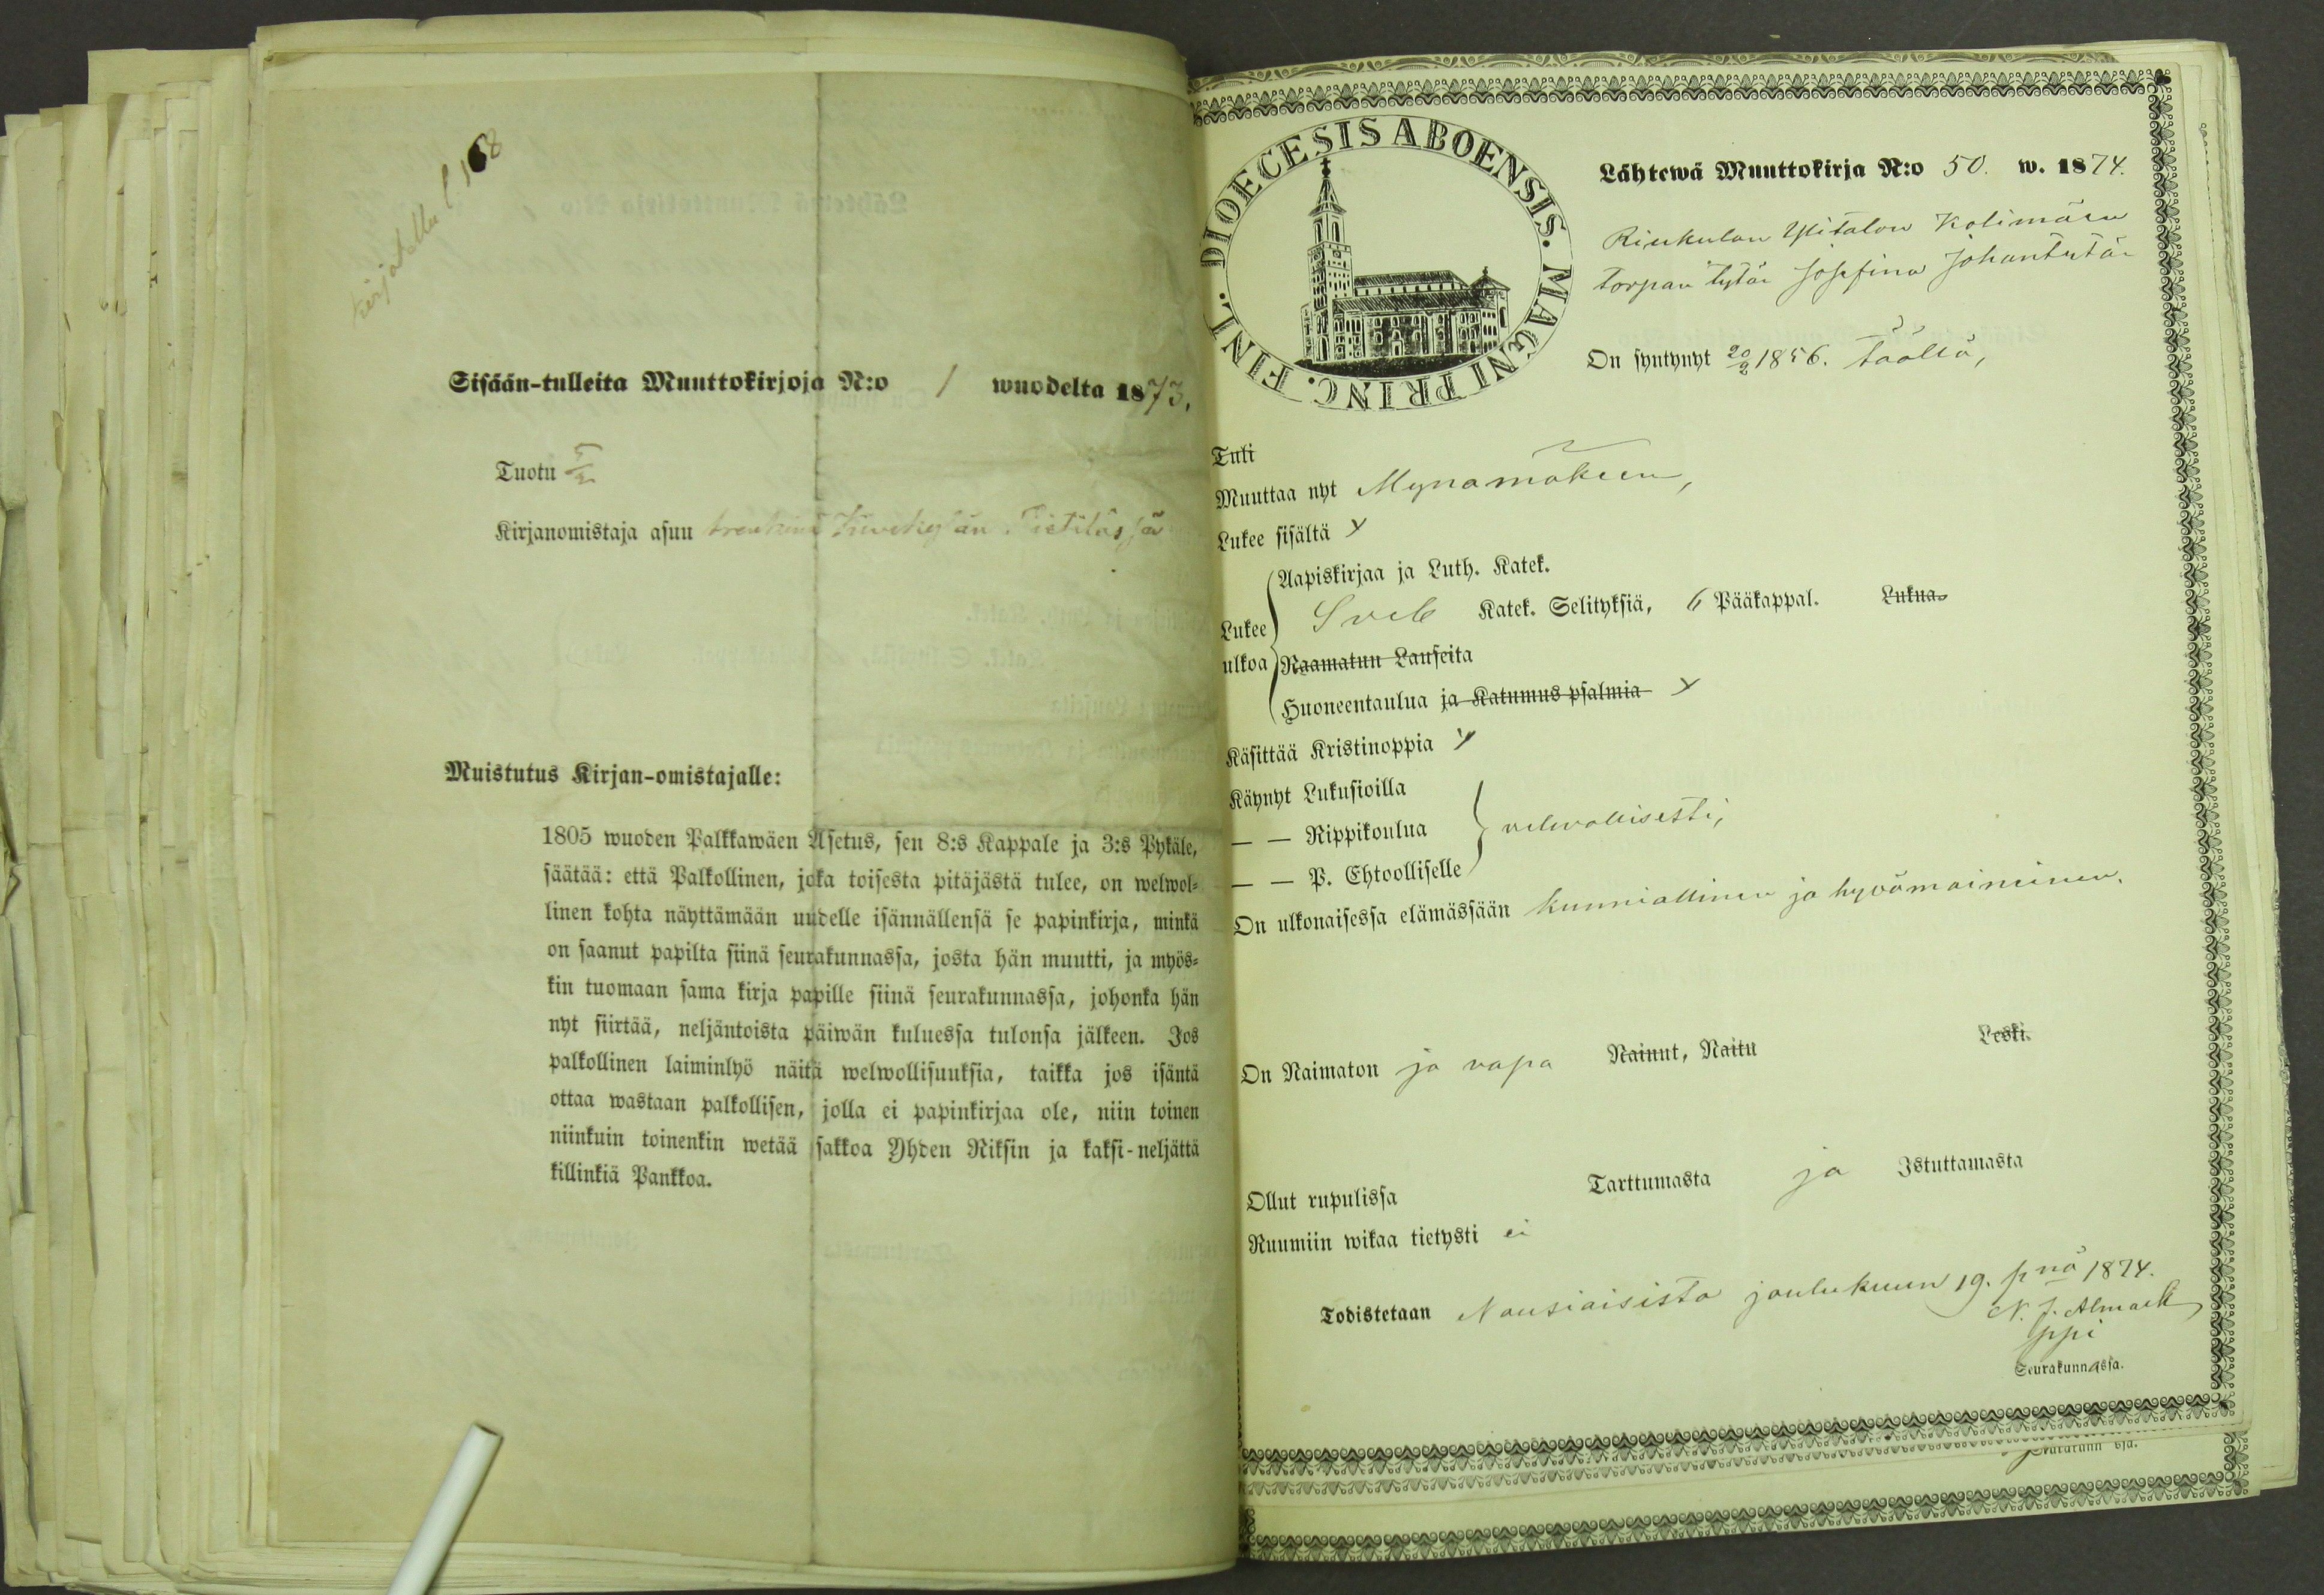 kirjatettu l. 168
Sisään-tulleita Muuttokirjoja N:o 1 wuodelta 1873,
Tuotu
Kirjanomistaja asuu trenkinä Pietilässä
Muistutus Kirjan-omistajalle:
1805 wuoden Palkkawäen Asetus, sen 8:s Kappale ja 3:s Pykäle,
säätää: että Palkollinen, joka toisesta pitäjästä tulee, on welwol-
linen kohta näyttämään uudelle isännällensä se papinkirja, minkä
on saanut papilta siinä seurakunnassa, josta hän muutti, ja myös-
kin tuomaan sama kirja papille siinä seurakunnassa, johonka hän
nyt siirtää, neljäntoista päiwän kuluessa tulonsa jälkeen. Jos
palkollinen laiminlyö näitä welwollisuuksia, taikka jos isäntä
ottaa wastaan palkollisen, jolla ei papinkirjaa ole, niin toinen
niinkuin toinenkin wetää sakkoa Yhden Riksin ja kaksi-neljättä
killinkiä Pankkoa.
DIOECESIS ABOENSIS. MAGNI PRINC. FINL.
Lähtewä Muuttokirja N:o 50. w. 1874.
Riukulan Ylitalon Kolimäen
torpan tytär Josefina Johantytär
On syntynyt 20/2 1856. täällä,
Tuli
Muuttaa nyt Mynämäkeen,
Lukee sisältä y
Aapiskirjaa ja Luth. Katek.
Lukee Sveb Katek. Selityksiä, 6 Pääkappal. Lukua.
ulkoa Raamatun Lauseita
Huoneentaulua ja Katumus psalmia y
Käsittää Kristinoppia y
Käynyt Lukusioilla
— — Rippikoulua velvollisesti,
— — P. Ehtoolliselle
On ulkonaisessa elämässään kunniallinen ja hyvämaininen.
On Naimaton ja vapa Nainut, Naitu Leski.
Ollut rupulissa Tarttumasta ja Istuttamasta
Ruumiin wikaa tietysti ei
Todistetaan Nousiaisista joulukuun 19. p:nä 1874.
N. J. Almark
ppi
Seurakunnassa.